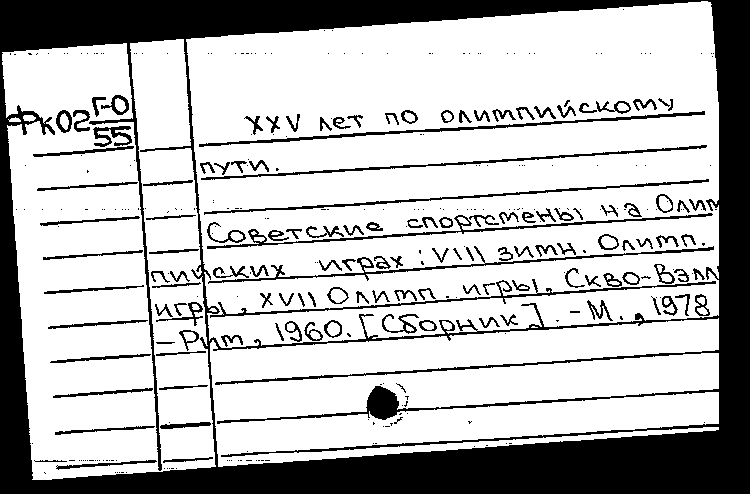 Фк02 Г-О
55
XXV лет по олимпийскому
пути.
Советские спортсмены на Олим
пийских играх: VIII зимн. Олимп.
игры, XVII Олимп. игры, Скво-Вэлл
-Рим, 1960. [Сборник]. -М., 1978